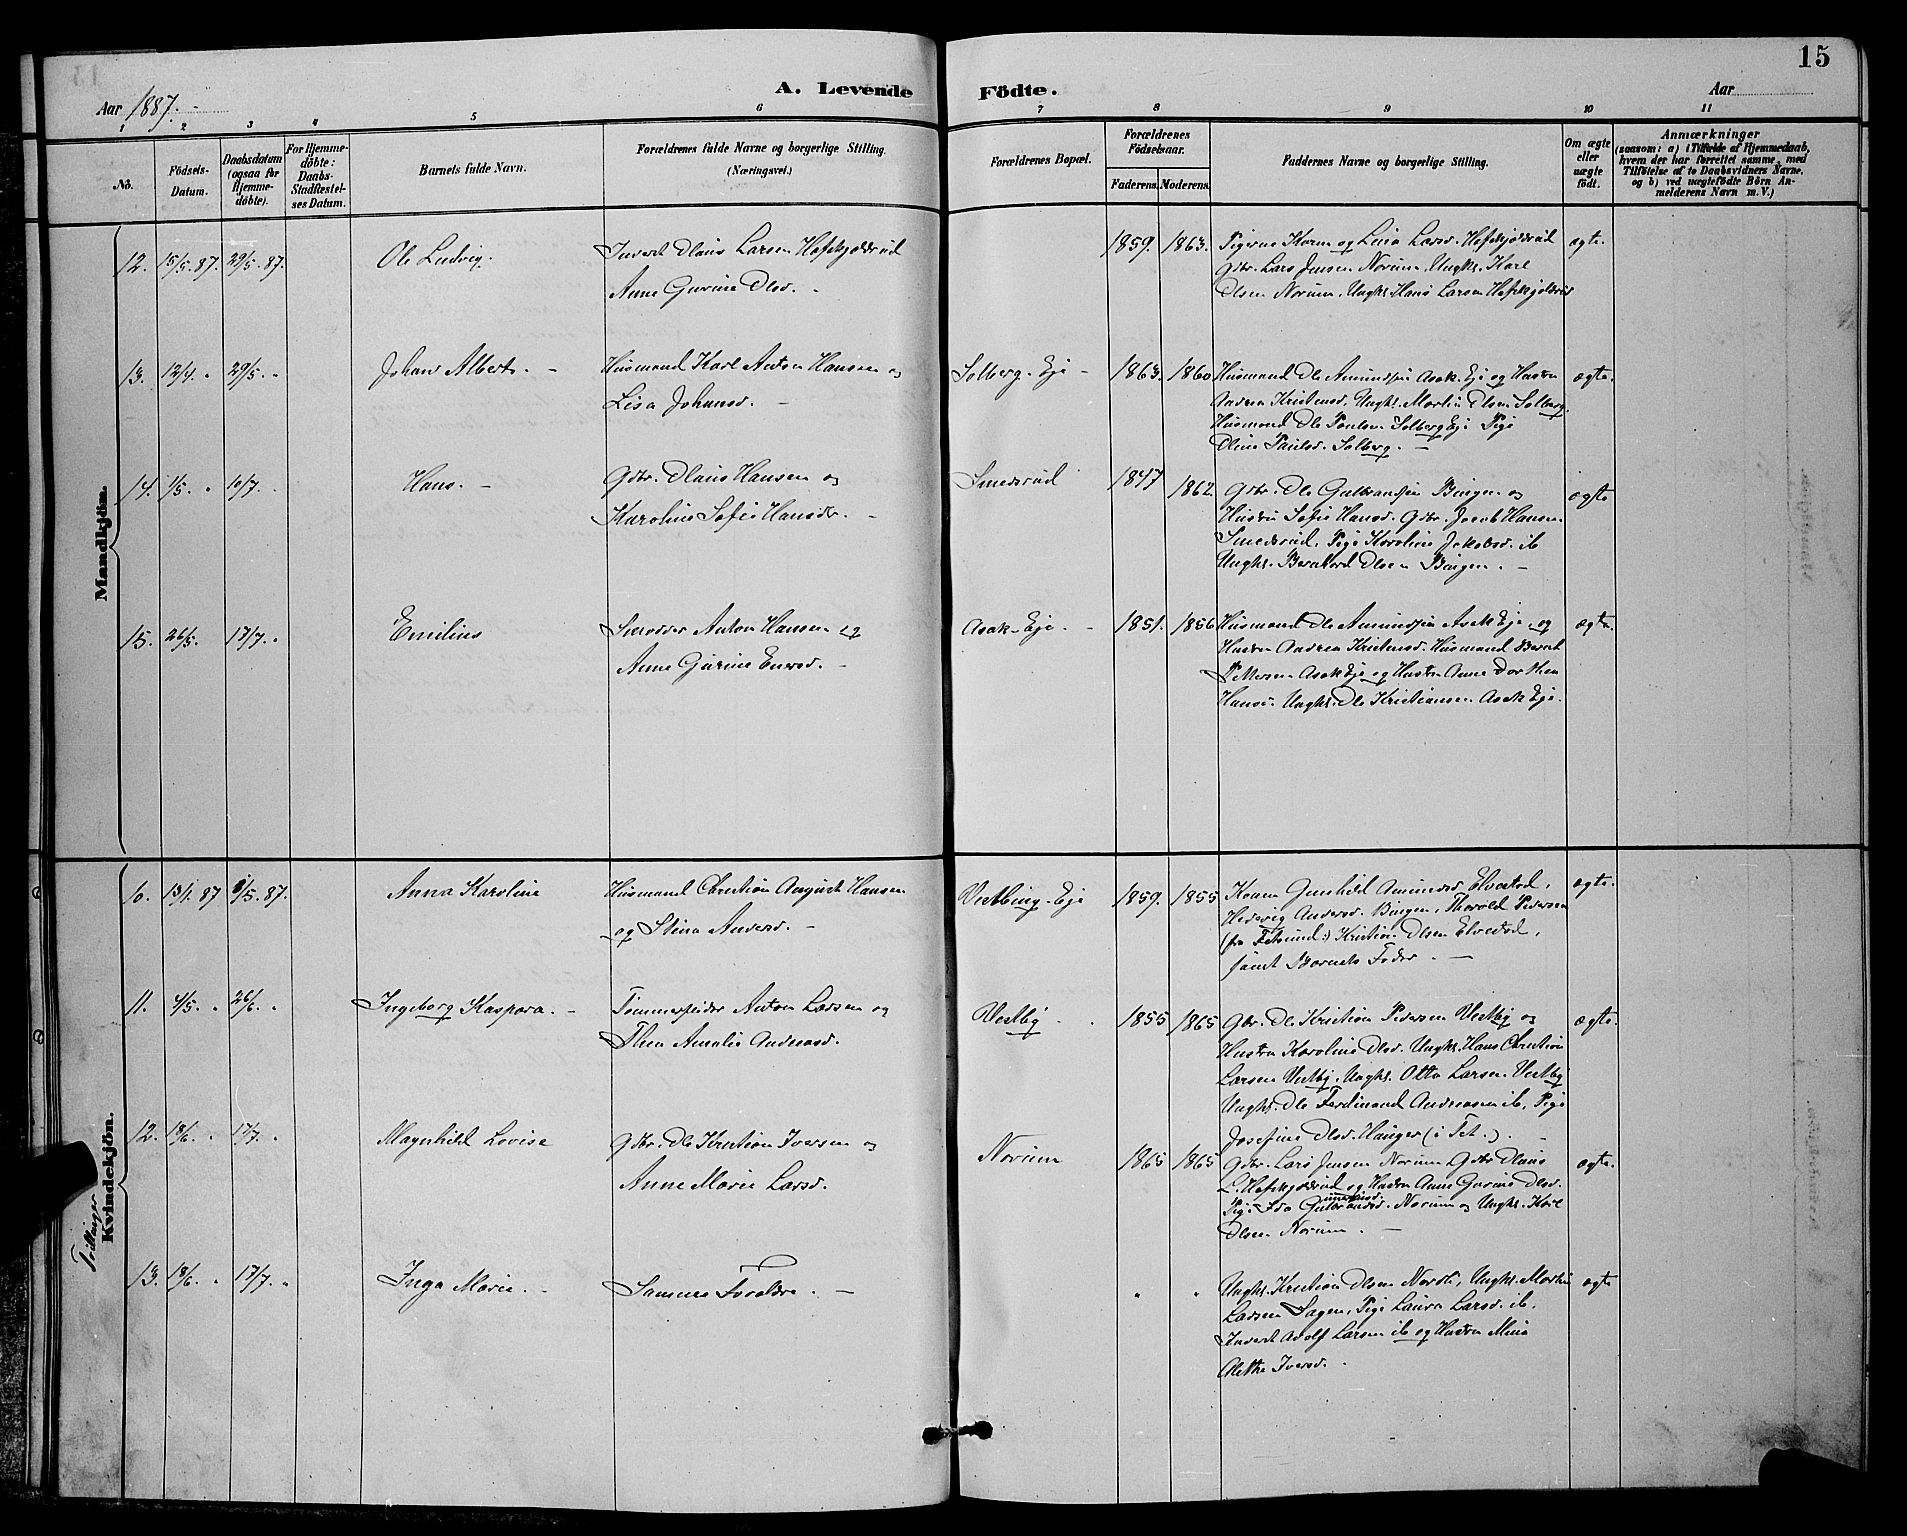 15
Aar 1887.
A. Levende Födte.
Aar
1 2 3 4 5 6 7 8 9 10 11
No.
Födsels-Datum.
Daabsdatum (ogsaa for Hjemme-döbte).
For Hjemme-döbte: Daabs-Stadfæstel-ses Datum.
Barnets fulde Navn.
Forældrenes fulde Navne og borgerlige Stilling. (Næringsvei.)
Forældrenes Bopæl.
Forældrenes Födselsaar.
Faderens. Moderens.
Faddernes Navne og borgerlige Stilling.
Om ægte eller uægte födt.
Anmærkninger
(saasom: a) i Tilfælde af Hjemmedaab,
hvem der har forrettet samme, med
Tilföielse af to Daabsvidners Navne,
og b) ved uægtefödte Börn An-
melderens Navn m.V.)
Mandkjön.
12. 15/5.87. 29/5.87. Ole Ludvig. Inderst Olaus Larsen Hofskjoldrud
Anne Gurine Olsd. -
1859. 1863. Pigerne Karen og Lina Larsd. Hofskjoldrud
Gdbr. Lars Jensen Norum, Ungk. Karl
Olsen Norum, Ungk. Hans Larsen Hofskjoldrud
ægte.
13. 12/4. " 29/5. " Johan Albert. - Husmand Karl Anton Hansen og
Lisa Johansd. -
Solberg-Eje - 1863. 1860 Husmand Ole Amundsen Asak-Eje og Hustru
Andrea Kristensd. Ungk. Martin Olsen Solberg.
Husmand Ole Paulsen Solberg Eje Pige
Oline Paulsd. Solberg. -
ægte.
14. 1/5. " 10/7. " Hans. - Gdbr. Olaus Hansen og
Karoline Sofie Hansdr. -
Smedsrud 1847 1862. Gdbr. Ole Gulbrandsen Bingen og
Hustru Sofie Hansd. Gdbr. Jacob Hansen
Smedsrud, Pige Karoline Jakobsd. ib
Ungk. Bernhard Olsen Bingen. -
ægte
15. 26/5. 17/7. " Emilius Anton Hansen og
Anne Gurine Enersd. -
Asak-Eje. - 1851. 1856 Husmand Ole Amundsen Asak Eje, og
Hustru Andrea Kristensd. Husmand Bernt
Pettersen Asak Eje og Hustru Anne Dorthea
Hansd. Ungk. Ole Kristiansen Asak Eje.
ægte.
Kvindekjön.
10. 13/1.87 8/5.87. Anna Karoline Husmand Christian August Hansen
og Stina Andersd. -
Vestbing-Eje 1859. 1855 Konen Gunhild Amundsd. Elvestad,
Hedevig Andersd. Bingen, Thorvald Pedersen
(fra Fetsund:) Kristian Olsen Elvestad,
samt Barnets Fader. -
ægte.
11. 4/5. " 26/6. " Ingeborg Kaspara. - Tømmerfløder Anton Larsen og
Thea Amalie Andersd.
Vestby - 1855 1865 Gdbr. Ole Kristian Pedersen Vestby og
Hustru Karoline Olsd. Ungk. Hans Christian
Larsen Vestby, Ungk. Otto Larsen Vestby
Ungk. Ole Ferdinand Andersen ib, Pige
Josefine Olsd. Hauger (i Fet.). -
ægte.
Tvillinger
12. 18/6. " 17/7. " Magnhild Lovise Gdbr. Ole Kristian Iversen og
Anne Marie Larsd.
Norum 1865 1865 Gdbr. Lars Jensen Norum Gdbr Olaus
L. Hofskjoldrud og Hustru Anne Gurine Olsd.
Pige Ida Gulbrandsd. Norum og Ungk. Karl
Olsen Norum. -
ægte.
13. 18/6. " 17/7. " Inga Marie. - Samme Forældre. -
" " Ungk. Kristian Olsen Nordli, Ungk. Martin
Larsen Hagen, Pige Laura Larsd. ib.
Inderst Adolf Larsen ib og Hustru Mina
Alethe Iversd. -
ægte